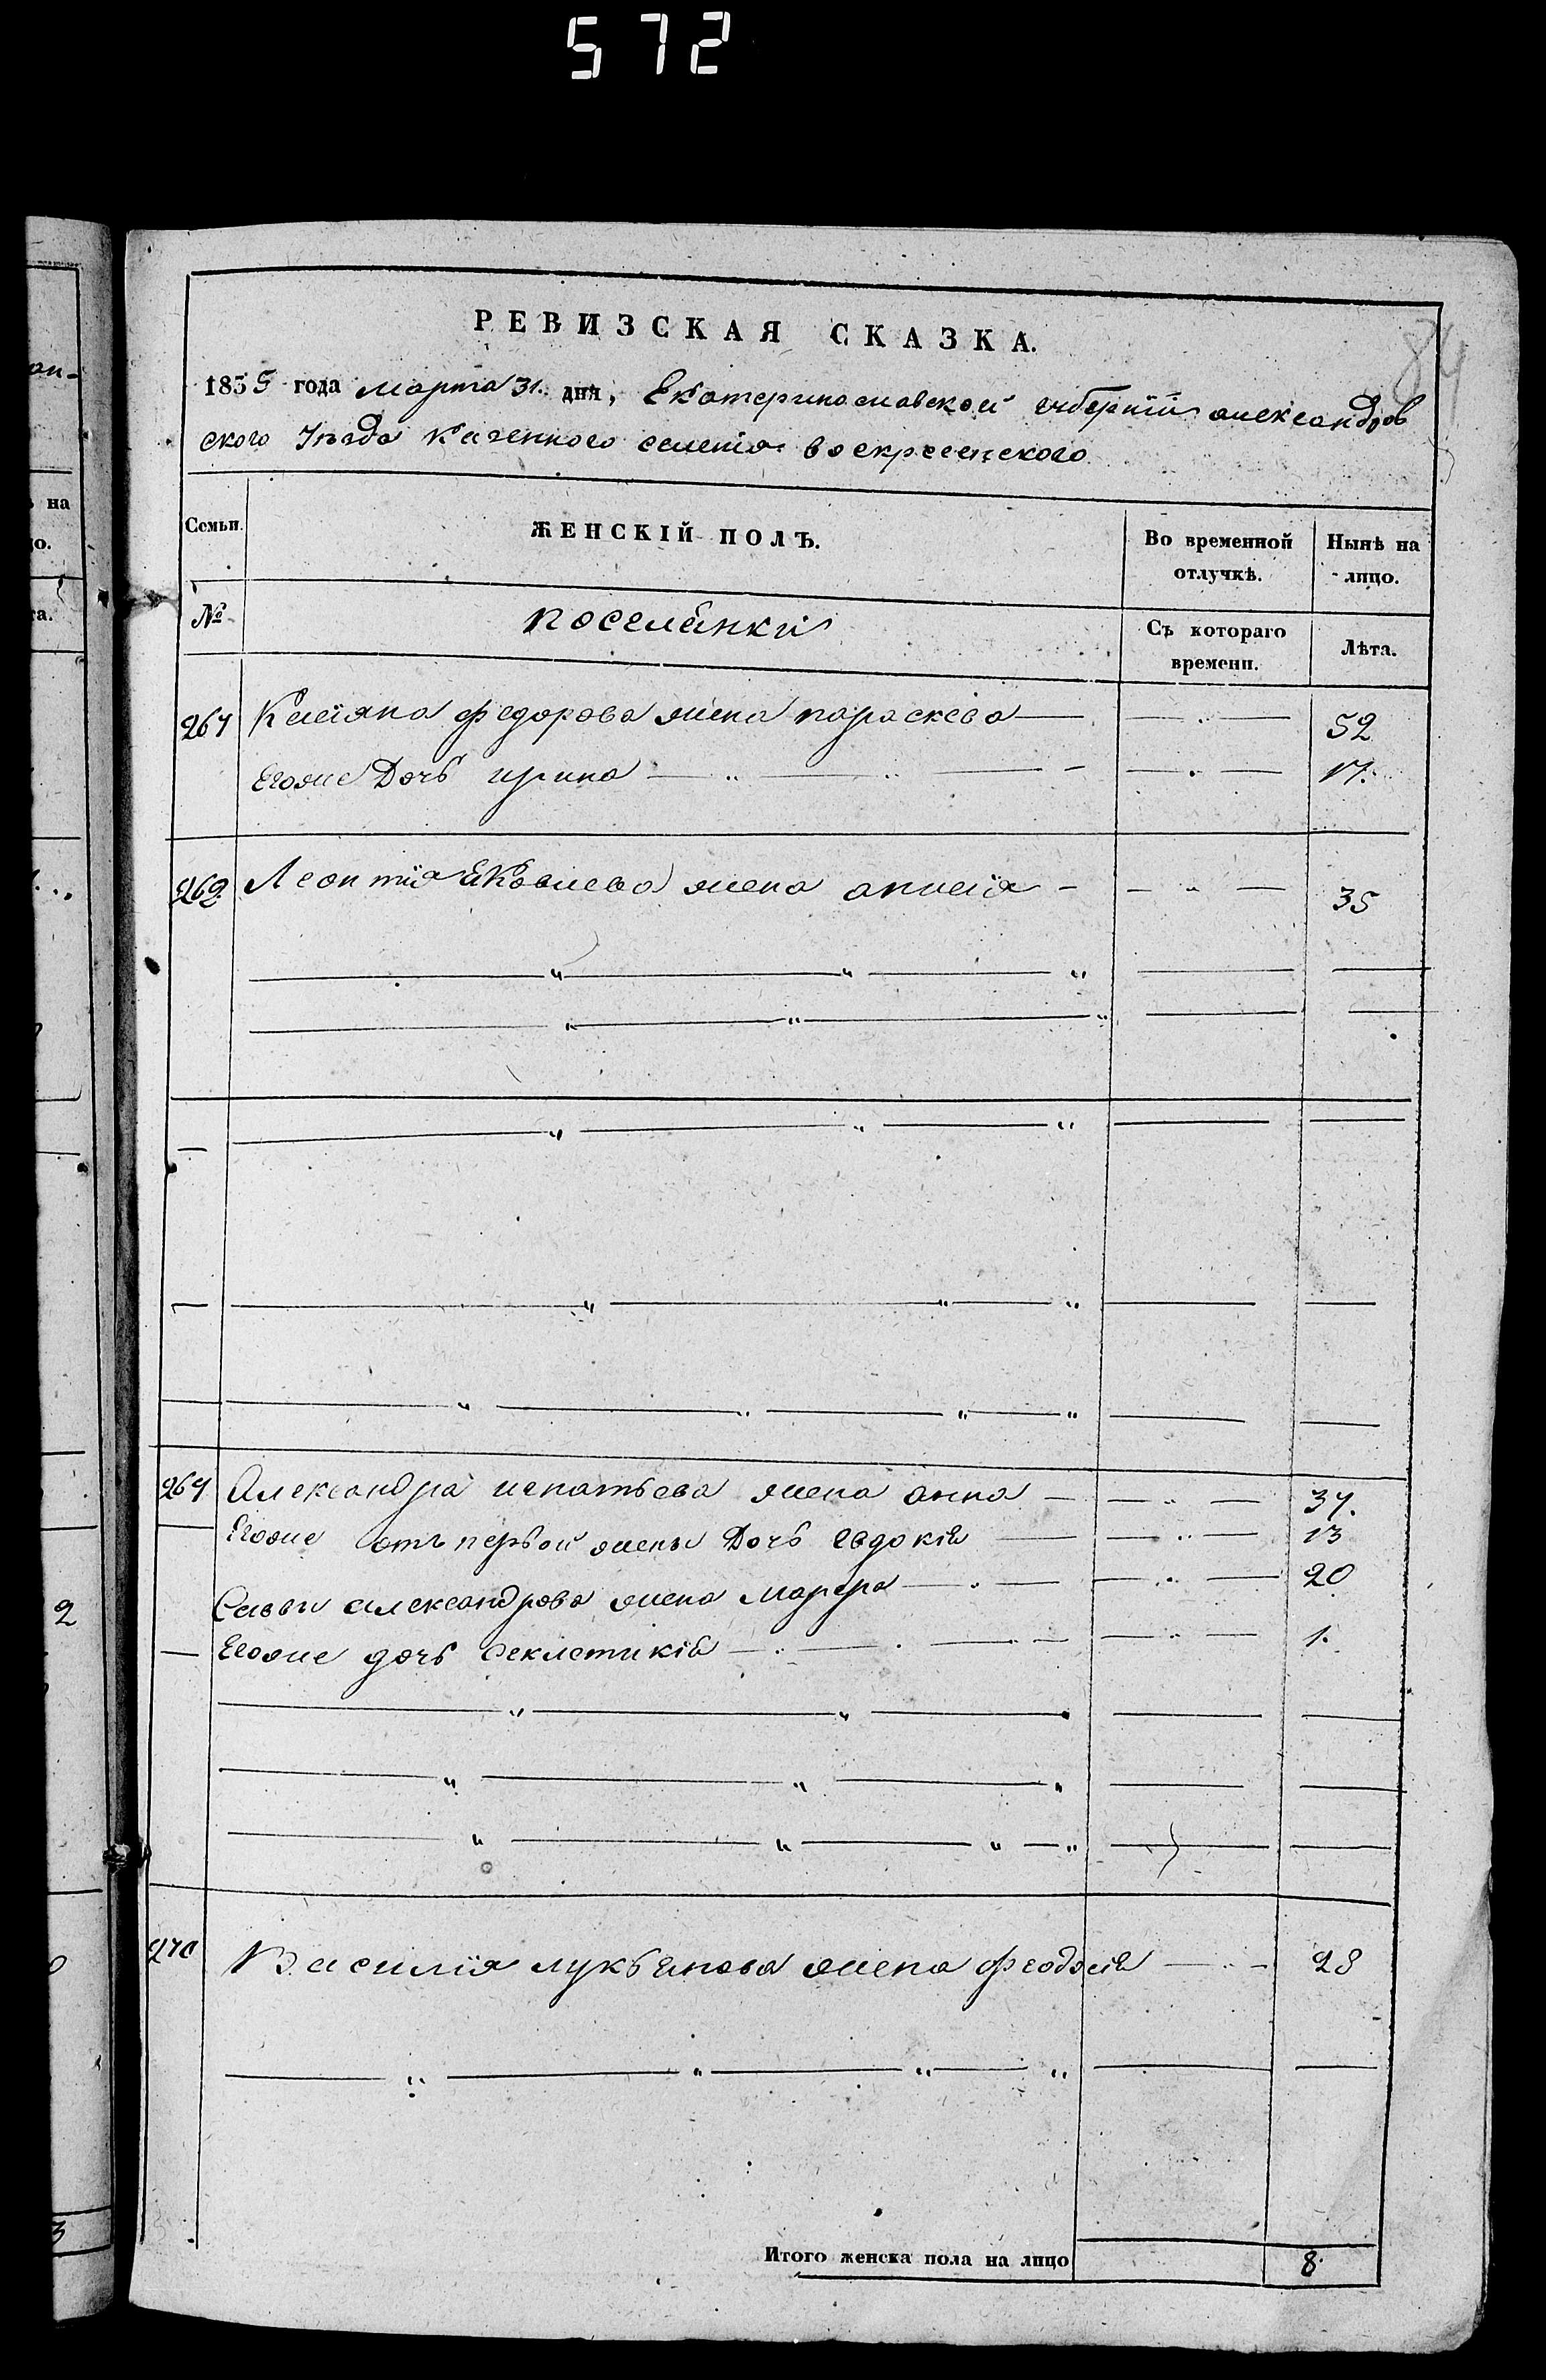 572
84
РЕВИЗСКАЯ СКАЗКА.
1835 года марта 31. дня, Екатеринославской губерніи александров
ского уѣзда казенного селенія воскресенского
Семьи. ЖЕНСКІЙ ПОЛЪ. Во временной отлучкѣ. Нынѣ на лицо.
№ поселянки Съ котораго времени. Лѣта.
267 Касіяна федорова жена параскева 52
Егоже Дочь ирина 17.
268 Леонтія яковлева жена анисія 35
269 Александра игнатьева жена анна 37.
Егоже отъ первой жены Дочь евдокія 13
Савы александрова жена марфа 20
Егоже дочь феклетикія 1.
270 Василія лукьянова жена феодосія 28
Итого женска пола на лицо 8
на
ю.
та.
2
3